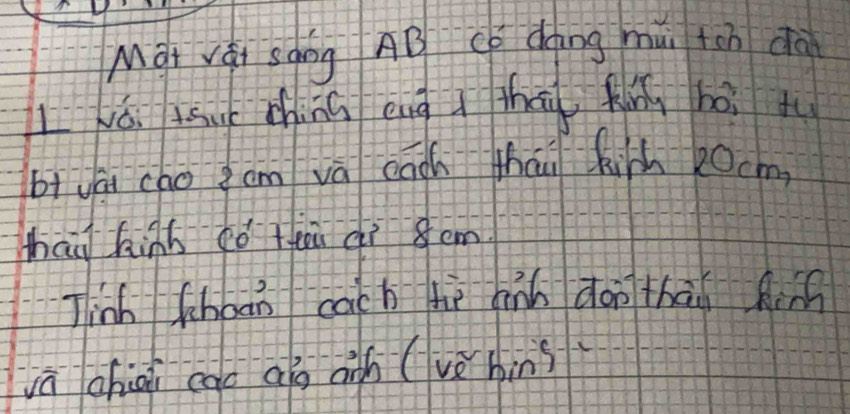 Một vật sáng AB có dạng mũi tên đặt
⊥ với trục chính của 1 thấu kính hội tụ
bt vật cao 2 cm và cách thấu kính 20cm,
thấu kính có tiêu cự 8cm.
Tính khoản cách từ ảnh đến thấu kính
và chiều cao của ảnh ( vẽ hình